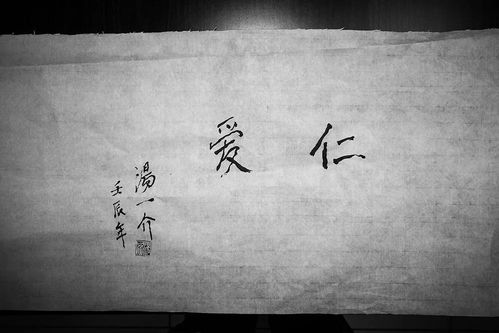 仁爱
湯一介
壬辰年